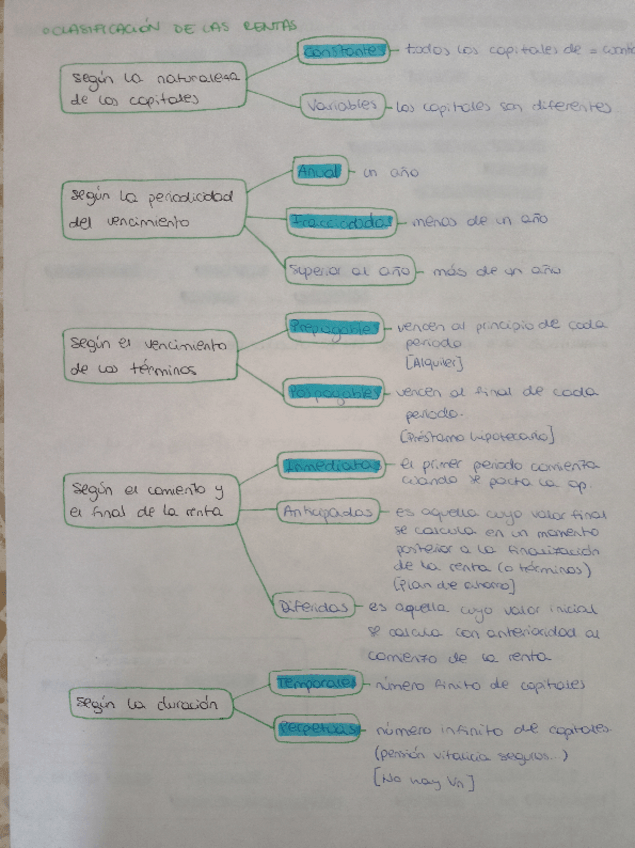 ○CLASIFICACIÓN DE LAS RENTAS
según la naturaleza
de los capitales
Constantes - todos los capitales de =
Variables - los capitales son diferentes
según la periodicidad
del vencimiento
Anual - un año
Fraccionadas - menos de un año
Superior al año - más de un año
según el vencimiento
de los términos
Prepagables - vencen al principio de cada
periodo
[Alquiler]
Pospagables - vencen al final de cada
periodo.
[Préstamo hipotecario]
según el comienzo y
el final de la renta
Inmediatas - el primer periodo comienza
cuando se pacta la op.
Anticipadas - es aquella cuyo valor final
se calcula en un momento
posterior a la finalización
de la renta (o términos)
[Plan de ahorro]
Diferidas - es aquella cuyo valor inicial
se calcula con anterioridad al
comienzo de la renta
según la duración
Temporales - número finito de capitales
Perpetuas - número infinito de capitales
(pensión vitalicia seguros...)
[No hay Vn]